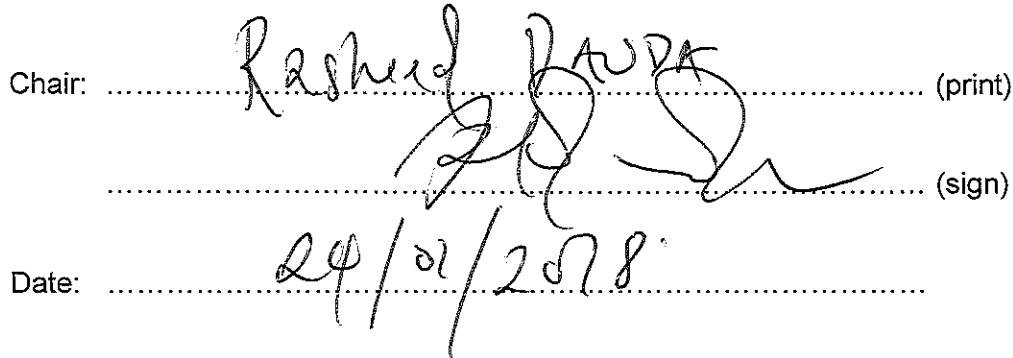 Chair: Rasheed DAUDA (print)
(sign)
Date: 24/01/2018